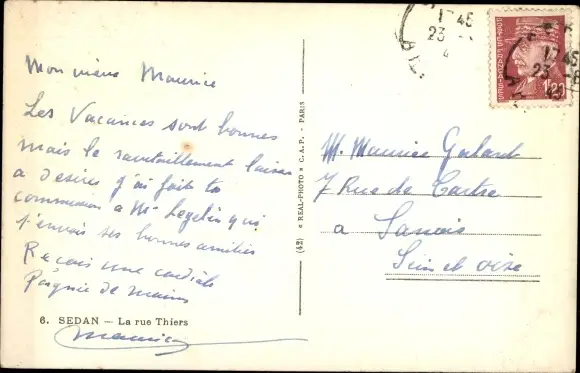 Mon vieux Maurice
Les Vacances sont bonnes
mais le ravitaillement laisse
a desirer j'ai fait ta
commission a Mr Legelin qui
t'envois ses bonnes amitiés
Recois une cordiale
Poignée de mains
6. SEDAN — La rue Thiers
Maurice
(42) « REAL-PHOTO » C. A. P. - PARIS
1745
23 -
4
1745
23 - 8
M. Maurice Galand
7 Rue de
a Sanois
Seine et oise